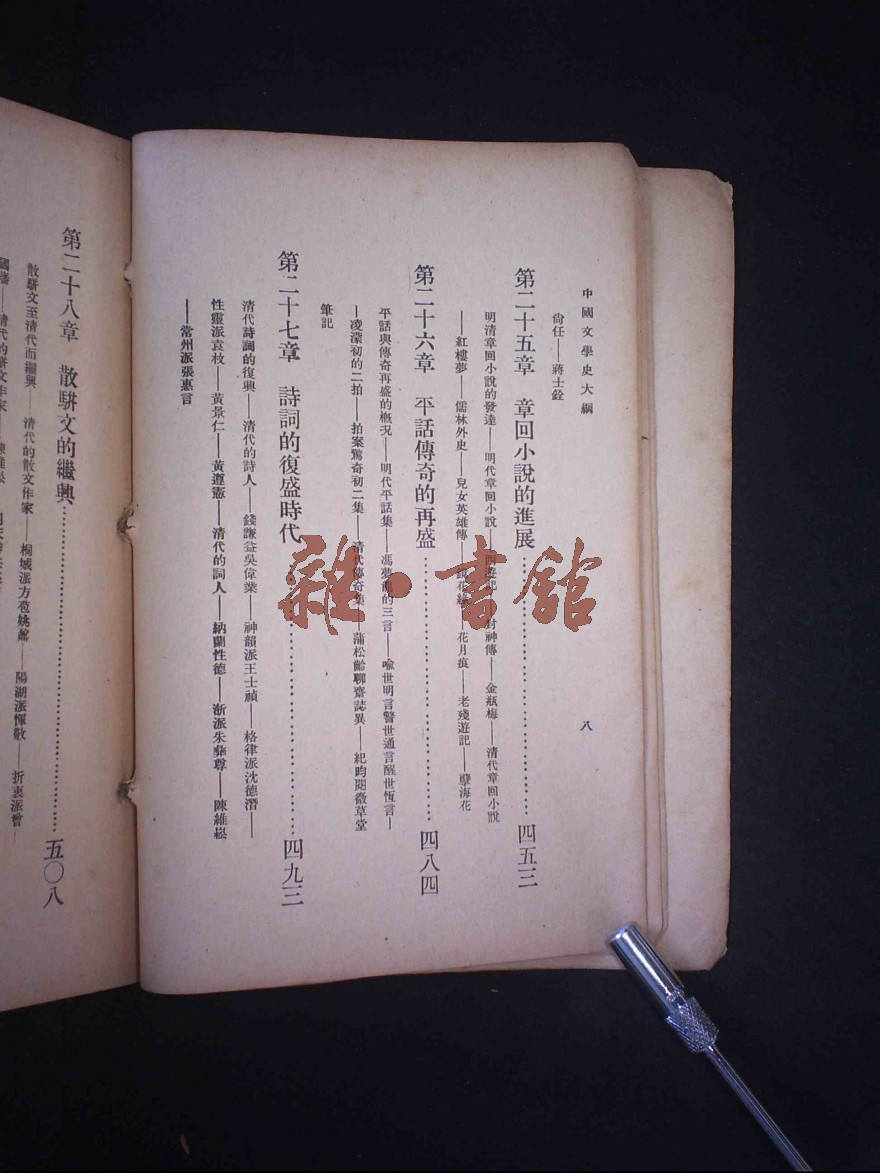 中國文學史大綱
八
尙任——蔣士銓
第二十五章 章回小說的進展……四五三
明清章回小說的發達——明代章回小說——西遊記——封神傳——金瓶梅——清代章回小說
——紅樓夢——儒林外史——兒女英雄傳——鏡花緣——花月痕——老殘遊記——孽海花
第二十六章 平話傳奇的再盛……四八四
平話與傳奇再盛的槪況——明代平話集——馮夢龍的三言——喩世明言警世通言醒世恆言—
—凌濛初的二拍——拍案驚奇初二集——清代傳奇集——蒲松齡聊齋誌異——紀昀閱微草堂
筆記
第二十七章 詩詞的復盛時代……四九三
清代詩詞的復興——清代的詩人——錢謙益吳偉業——神韻派王士禎——格律派沈德潛——
性靈派袁枚——黃景仁——黃遵憲——清代的詞人——納蘭性德——浙派朱彝尊——陳維崧
——常州派張惠言
第二十八章 散駢文的繼興……五〇八
散駢文至清代而繼興——清代的散文作家——桐城派方苞姚鼐——陽湖派惲敬——折衷派曾
國藩——清代的駢文作家——陳維崧
雜·書館